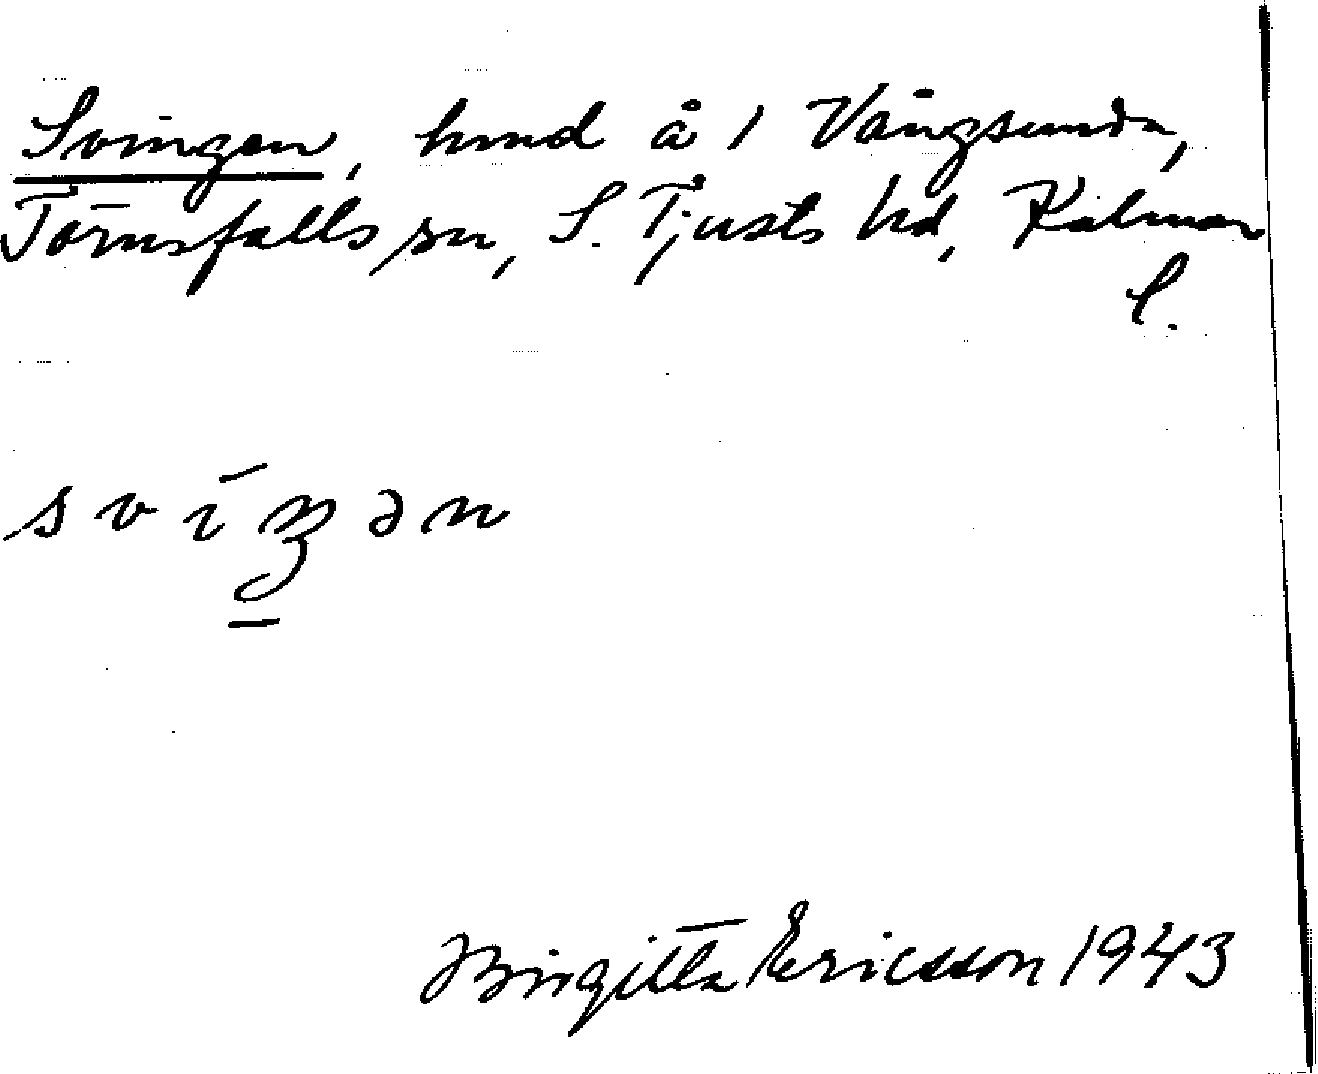 Svingen, hund å 1 Vängsunda,
Törnsfalls sn, S. Tjusts hd, Kalmar
l.
svíŋən
Birgitta Ericsson 1943